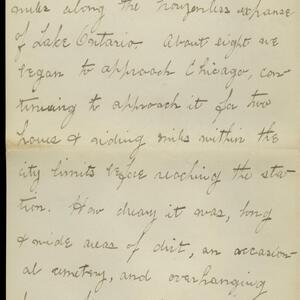 miles along the horizonless expanse
of Lake Ontario. About eight we
began to approach Chicago, con-
tinuing to approach it for two
hours & riding miles within the
city limits before reaching the sta-
tion. How dreary it was, long
& wide areas of dirt, an occasion-
al cemetery, and overhanging